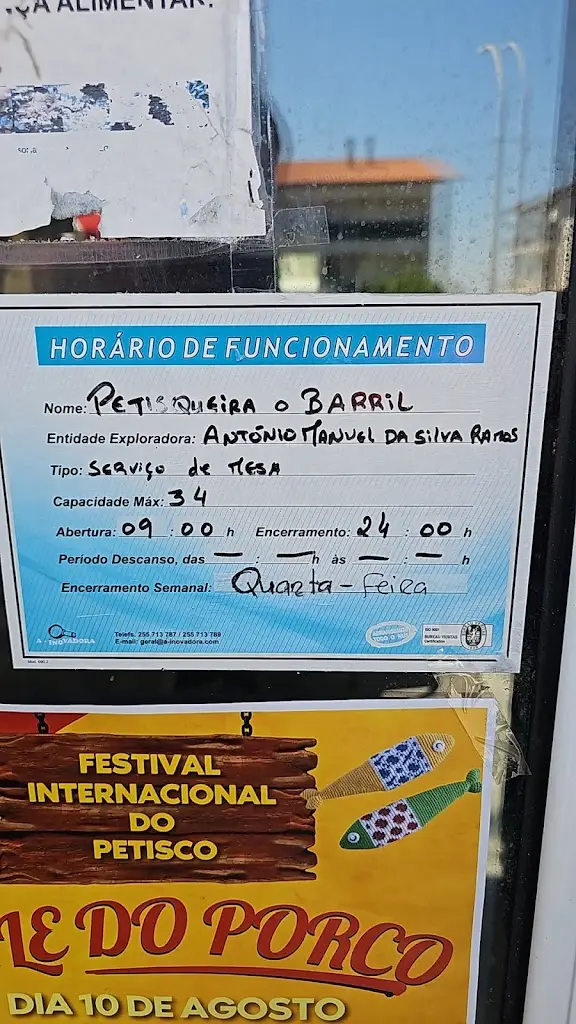 ALIMENTAR.
HORÁRIO DE FUNCIONAMENTO
Nome: PETISQUEIRA O BARRIL
Entidade Exploradora: ANTÓNIO MANUEL DA SILVA RAMOS
Tipo: SERVIÇO de MESA
Capacidade Máx: 34
Abertura: 09 : 00 h Encerramento: 24 : 00 h
Período Descanso, das — : — h às — : — h
Encerramento Semanal: Quarta-Feira
A-INOVADORA
Telefs. 255 713 787 / 255 713 789
E-mail: geral@a-inovadora.com
ISO 9001
BUREAU VERITAS
Certification
FESTIVAL
INTERNACIONAL
DO
PETISCO
DO PORCO
DIA 10 DE AGOSTO